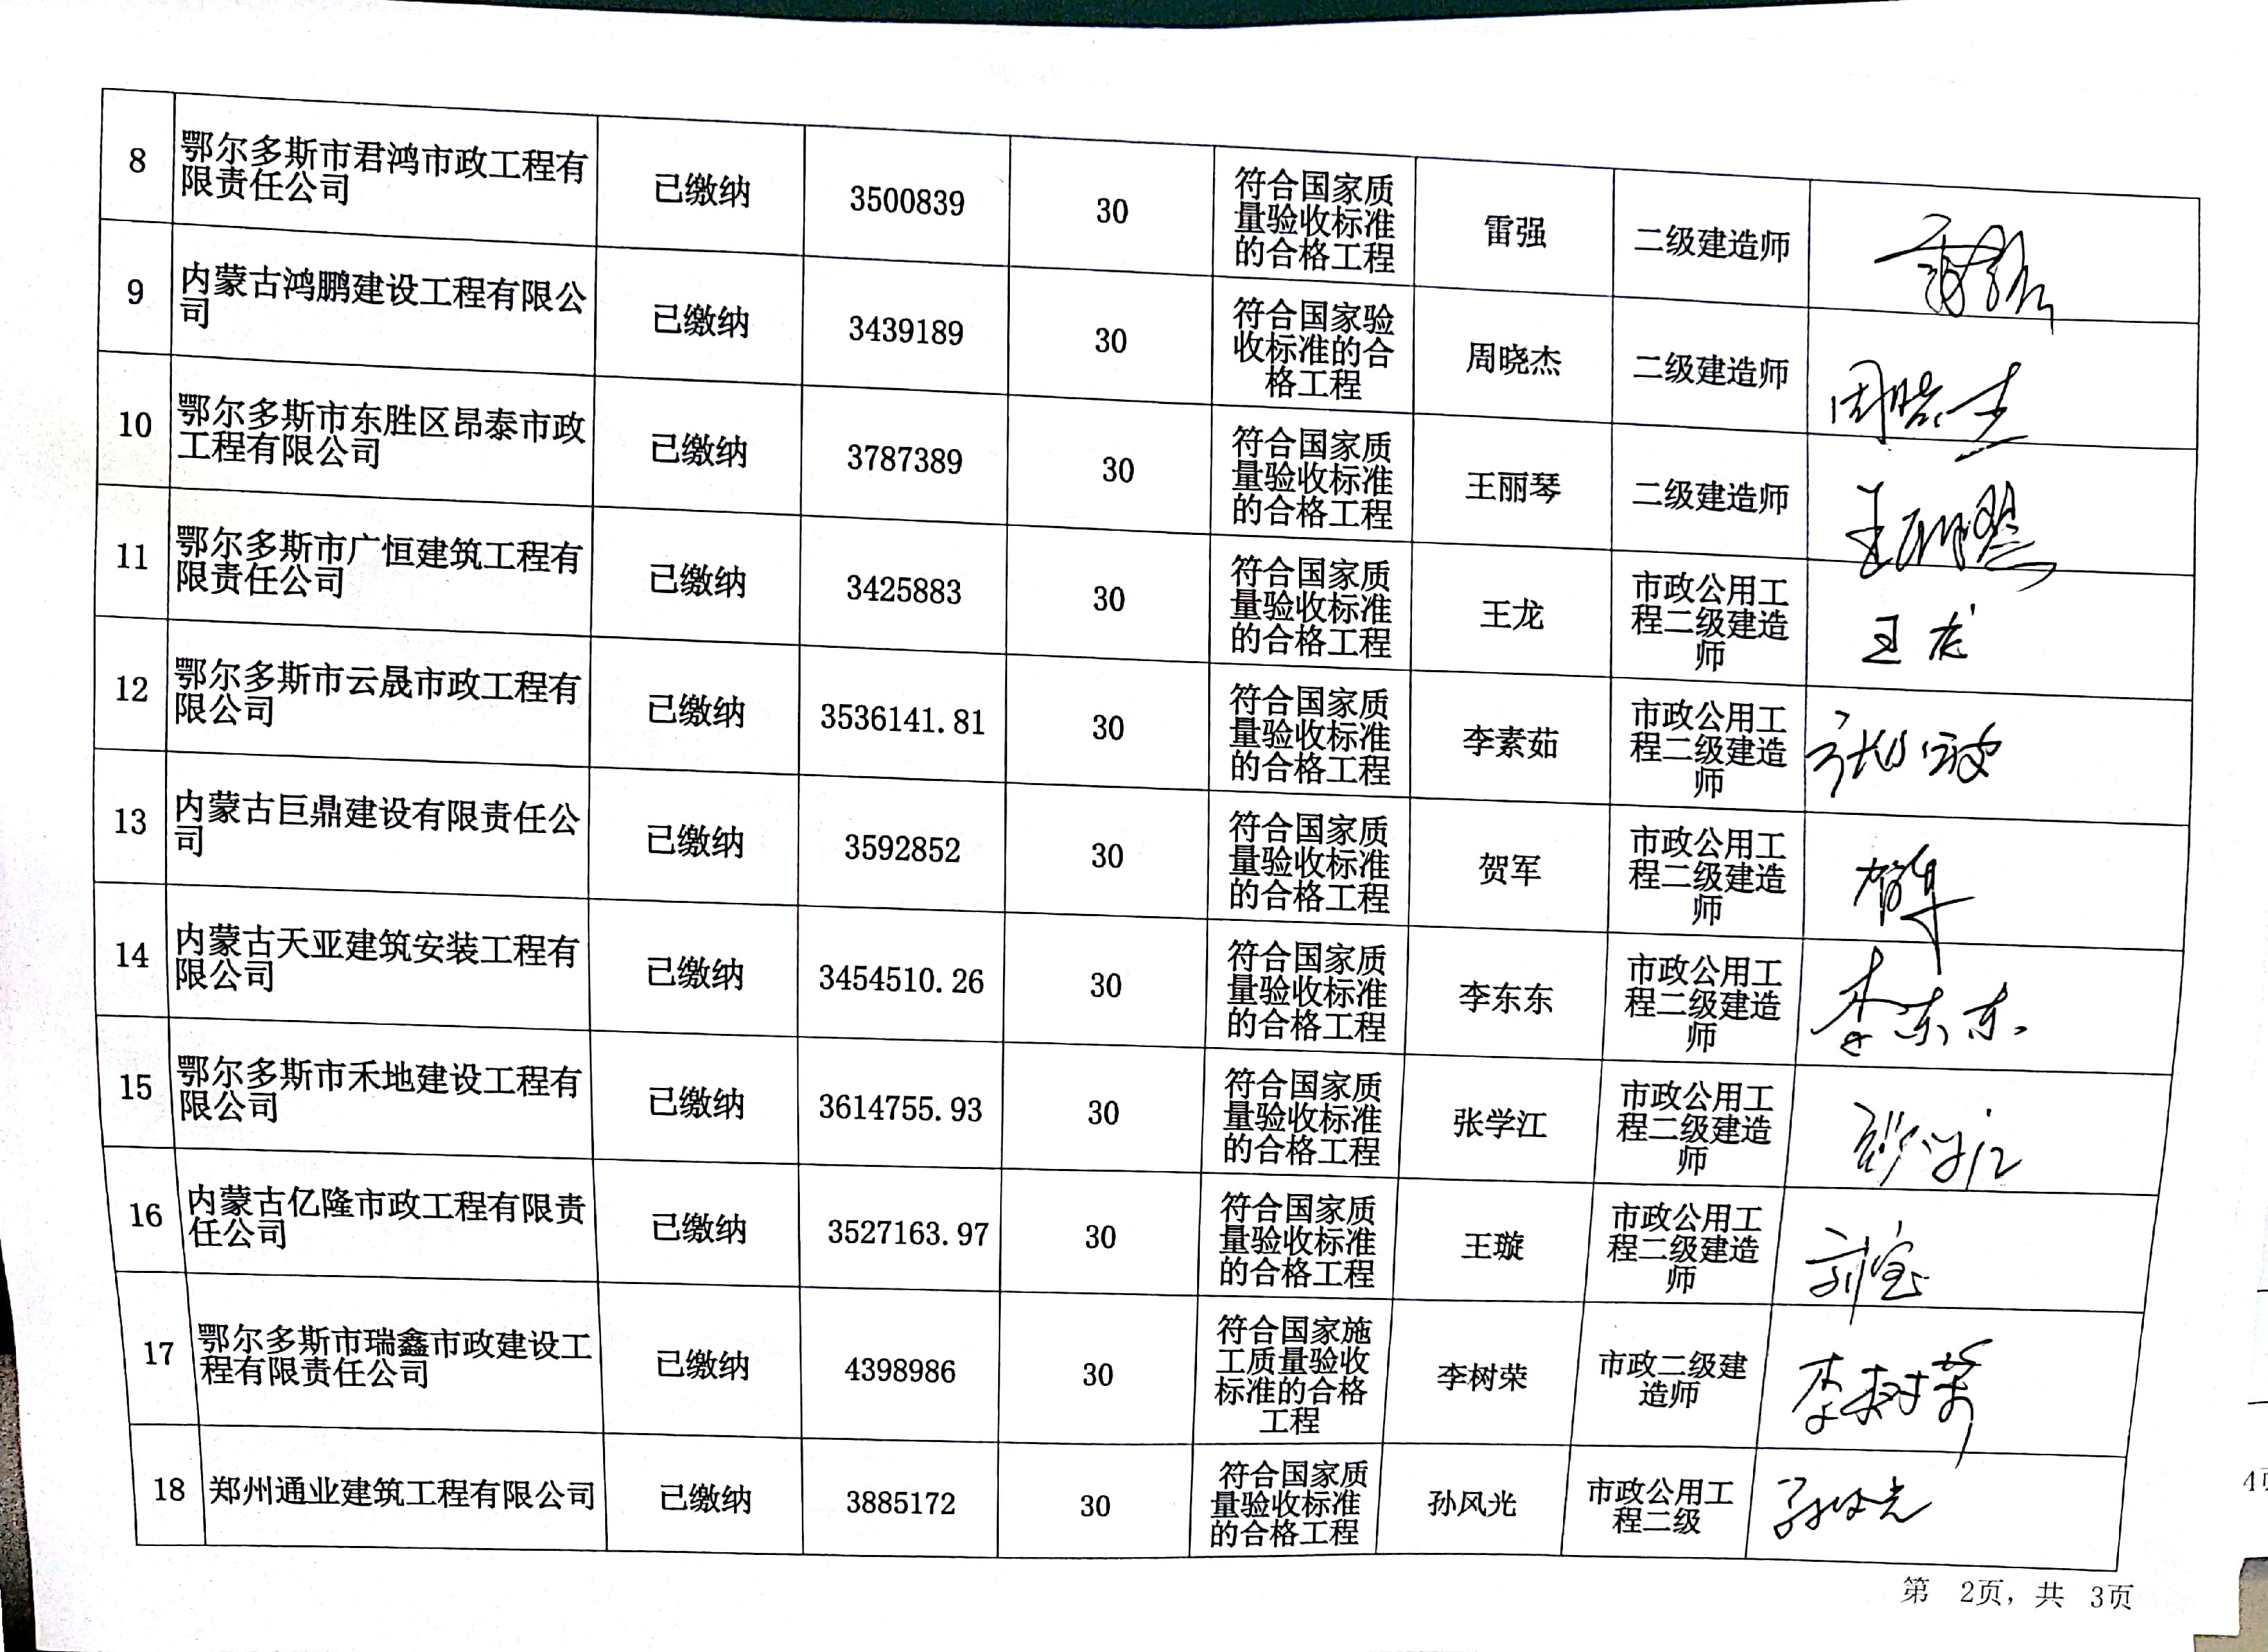 8
鄂尔多斯市君鸿市政工程有
限责任公司
已缴纳
3500839
30
符合国家质
量验收标准
的合格工程
雷强
二级建造师
9
内蒙古鸿鹏建设工程有限公
司
已缴纳
3439189
30
符合国家验
收标准的合
格工程
周晓杰
二级建造师
周晓杰
10
鄂尔多斯市东胜区昂泰市政
工程有限公司
已缴纳
3787389
30
符合国家质
量验收标准
的合格工程
王丽琴
二级建造师
王丽琴
11
鄂尔多斯市广恒建筑工程有
限责任公司
已缴纳
3425883
30
符合国家质
量验收标准
的合格工程
王龙
市政公用工
程二级建造
师
王龙
12
鄂尔多斯市云晟市政工程有
限公司
已缴纳
3536141.81
30
符合国家质
量验收标准
的合格工程
李素茹
市政公用工
程二级建造
师
13
内蒙古巨鼎建设有限责任公
司
已缴纳
3592852
30
符合国家质
量验收标准
的合格工程
贺军
市政公用工
程二级建造
师
贺军
14
内蒙古天亚建筑安装工程有
限公司
已缴纳
3454510.26
30
符合国家质
量验收标准
的合格工程
李东东
市政公用工
程二级建造
师
李东东
15
鄂尔多斯市禾地建设工程有
限公司
已缴纳
3614755.93
30
符合国家质
量验收标准
的合格工程
张学江
市政公用工
程二级建造
师
16
内蒙古亿隆市政工程有限责
任公司
已缴纳
3527163.97
30
符合国家质
量验收标准
的合格工程
王璇
市政公用工
程二级建造
师
17
鄂尔多斯市瑞鑫市政建设工
程有限责任公司
已缴纳
4398986
30
符合国家施
工质量验收
标准的合格
工程
李树荣
市政二级建
造师
李树荣
18
郑州通业建筑工程有限公司
已缴纳
3885172
30
符合国家质
量验收标准
的合格工程
孙风光
市政公用工
程二级
孙风光
第 2页, 共 3页